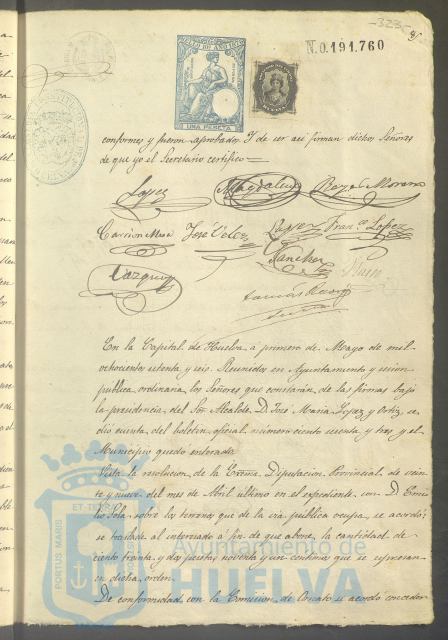 N.0.191.760
SELLO 10º AÑO 1876
UNA PESETA
conformes y fueron aprobados. Y de ser asi firman dichos Señores
de que yo el Secretario certifico =
Lopez Magdalena Rey de Moreno
Carrion Mesa José Velez Lasser Franco Lopez
Sanchez
Vazquez
Tomás
En la Capital de Huelva á primero de Mayo de mil
ochocientos setenta y seis. Reunidos en Ayuntamiento y sesion
publica ordinaria los Señores que constarán de las firmas bajo
la presidencia del Sor Alcalde D. José Maria Lopez y Ortiz, se
dió cuenta del boletin oficial numero ciento cuenta y tres y el
Municipio quedó enterado.
Vista la resolucion de la Exma. Diputacion Provincial de vein
te y nueve del mes de Abril ultimo en el expediente con D. Emi
lio Sola sobre los terrenos que de la via publica ocupa, se acordó
se traslade al interesado á fin de que abone la cantidad de
ciento treinta y dos pesetas noventa y un centimos que se espresan
en dicha orden.
De conformidad con la Comision de Ornato se acordó conceder
PORTUS MARIS ET TERRE
Ayuntamiento de
HUELVA